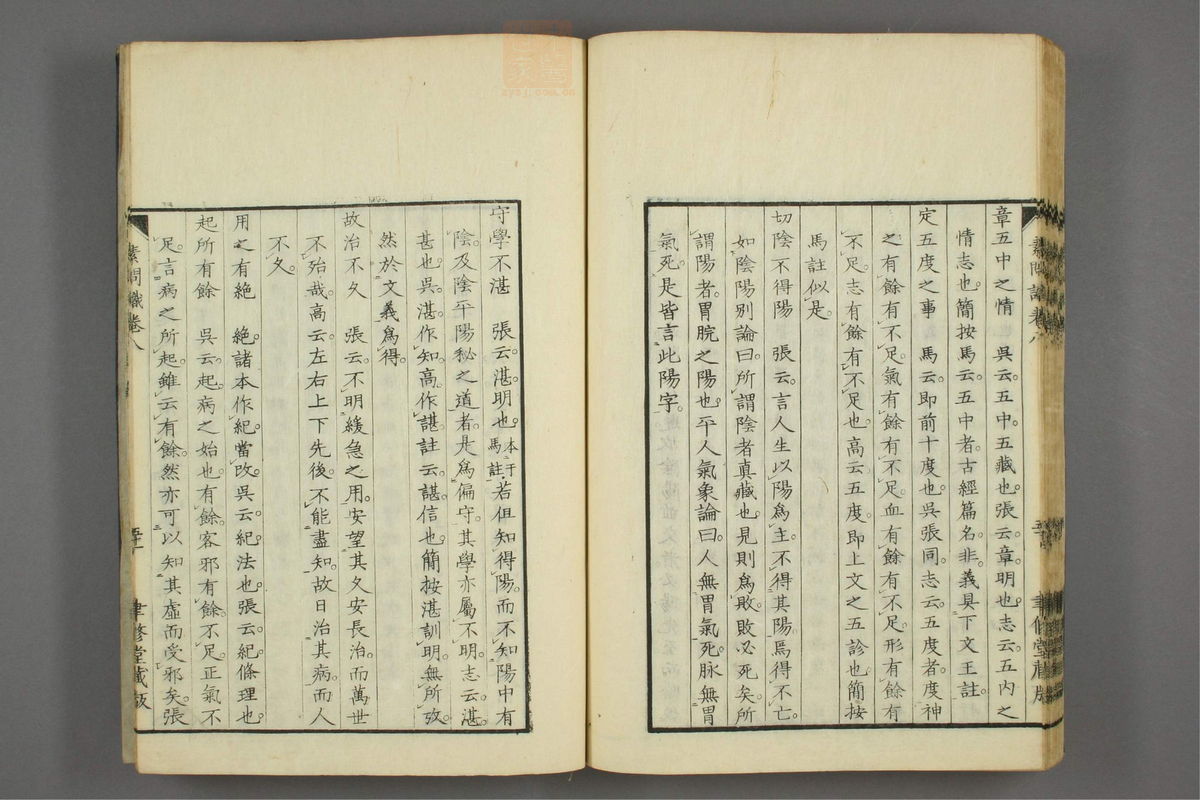 章五中之情　吳云五中五藏也張云章明也志云五内之
情志也簡按馬云五中者古經篇名非義具下文王註
定五度之事　馬云即前十度也吳張同志云五度者度神
之有餘有不足氣有餘有不足血有餘有不足形有餘有
不足志有餘有不足也高云五度即上文之五診也簡按
馬註似是
切陰不得陽　張云言人生以陽爲主不得其陽焉得不亡
如陰陽別論曰所謂陰者真藏也見則爲敗敗必死矣所
謂陽者胃脘之陽也平人氣象論曰人無胃氣死脉無胃
氣死是皆言此陽字
守學不湛　張云湛明也本于馬註若但知得陽而不知陽中有
陰及陰平陽秘之道者是爲偏守其學亦屬不明志云湛
甚也吳湛作知高作諶註云諶信也簡按湛訓明無所攷
然於文義爲得
故治不久　張云不明緩急之用安望其久安長治而萬世
不殆哉高云左右上下先後不能盡知故日治其病而人
不久
用之有絶　絶諸本作紀當改吳云紀法也張云紀條理也
起所有餘　吳云起病之始也有餘客邪有餘不足正氣不
足言病之所起雖云有餘然亦可以知其虛而受邪矣張
素問識卷八
聿修堂藏版